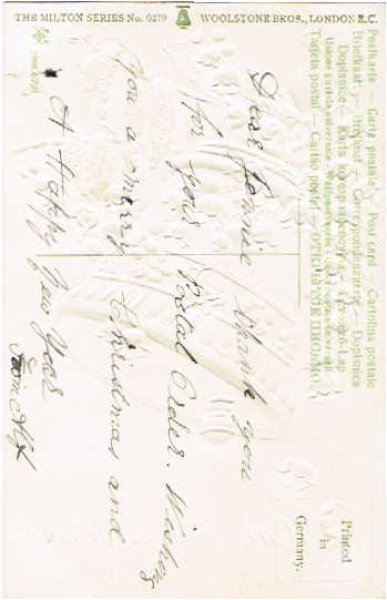 THE MILTON SERIES No. 0279 WOOLSTONE BROS., LONDON E.C.
Postkarte — Carte postale — Post card — Cartolina postale
Briefkaart — Brefkort — Correspondenzkarte — Dopisnica
Tarjeta postal — Cartão postal — ОТКРЫТОЕ ПИСЬМО.
Printed
in
Germany.
Dear Jennie thank you
for your Postal Order. Wishing
you a merry Christmas and
A Happy New Year
from Alf